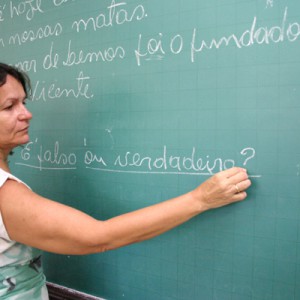 é hoje
em nossas matas.
dar de bemos foi o fundado
Vicente.
É falso ou verdadeiro?